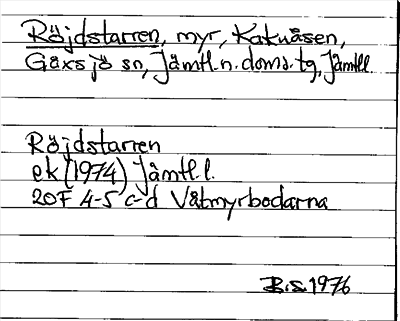 Röjdstarren, myr, Kakuåsen,
Gåxsjö sn, Jämtl. n. doms. tg, Jämtl.
Röjdstarren
ek (1974) Jämtl. l.
20F 4-5 c-d Våtmyrbodarna
B.S. 1976